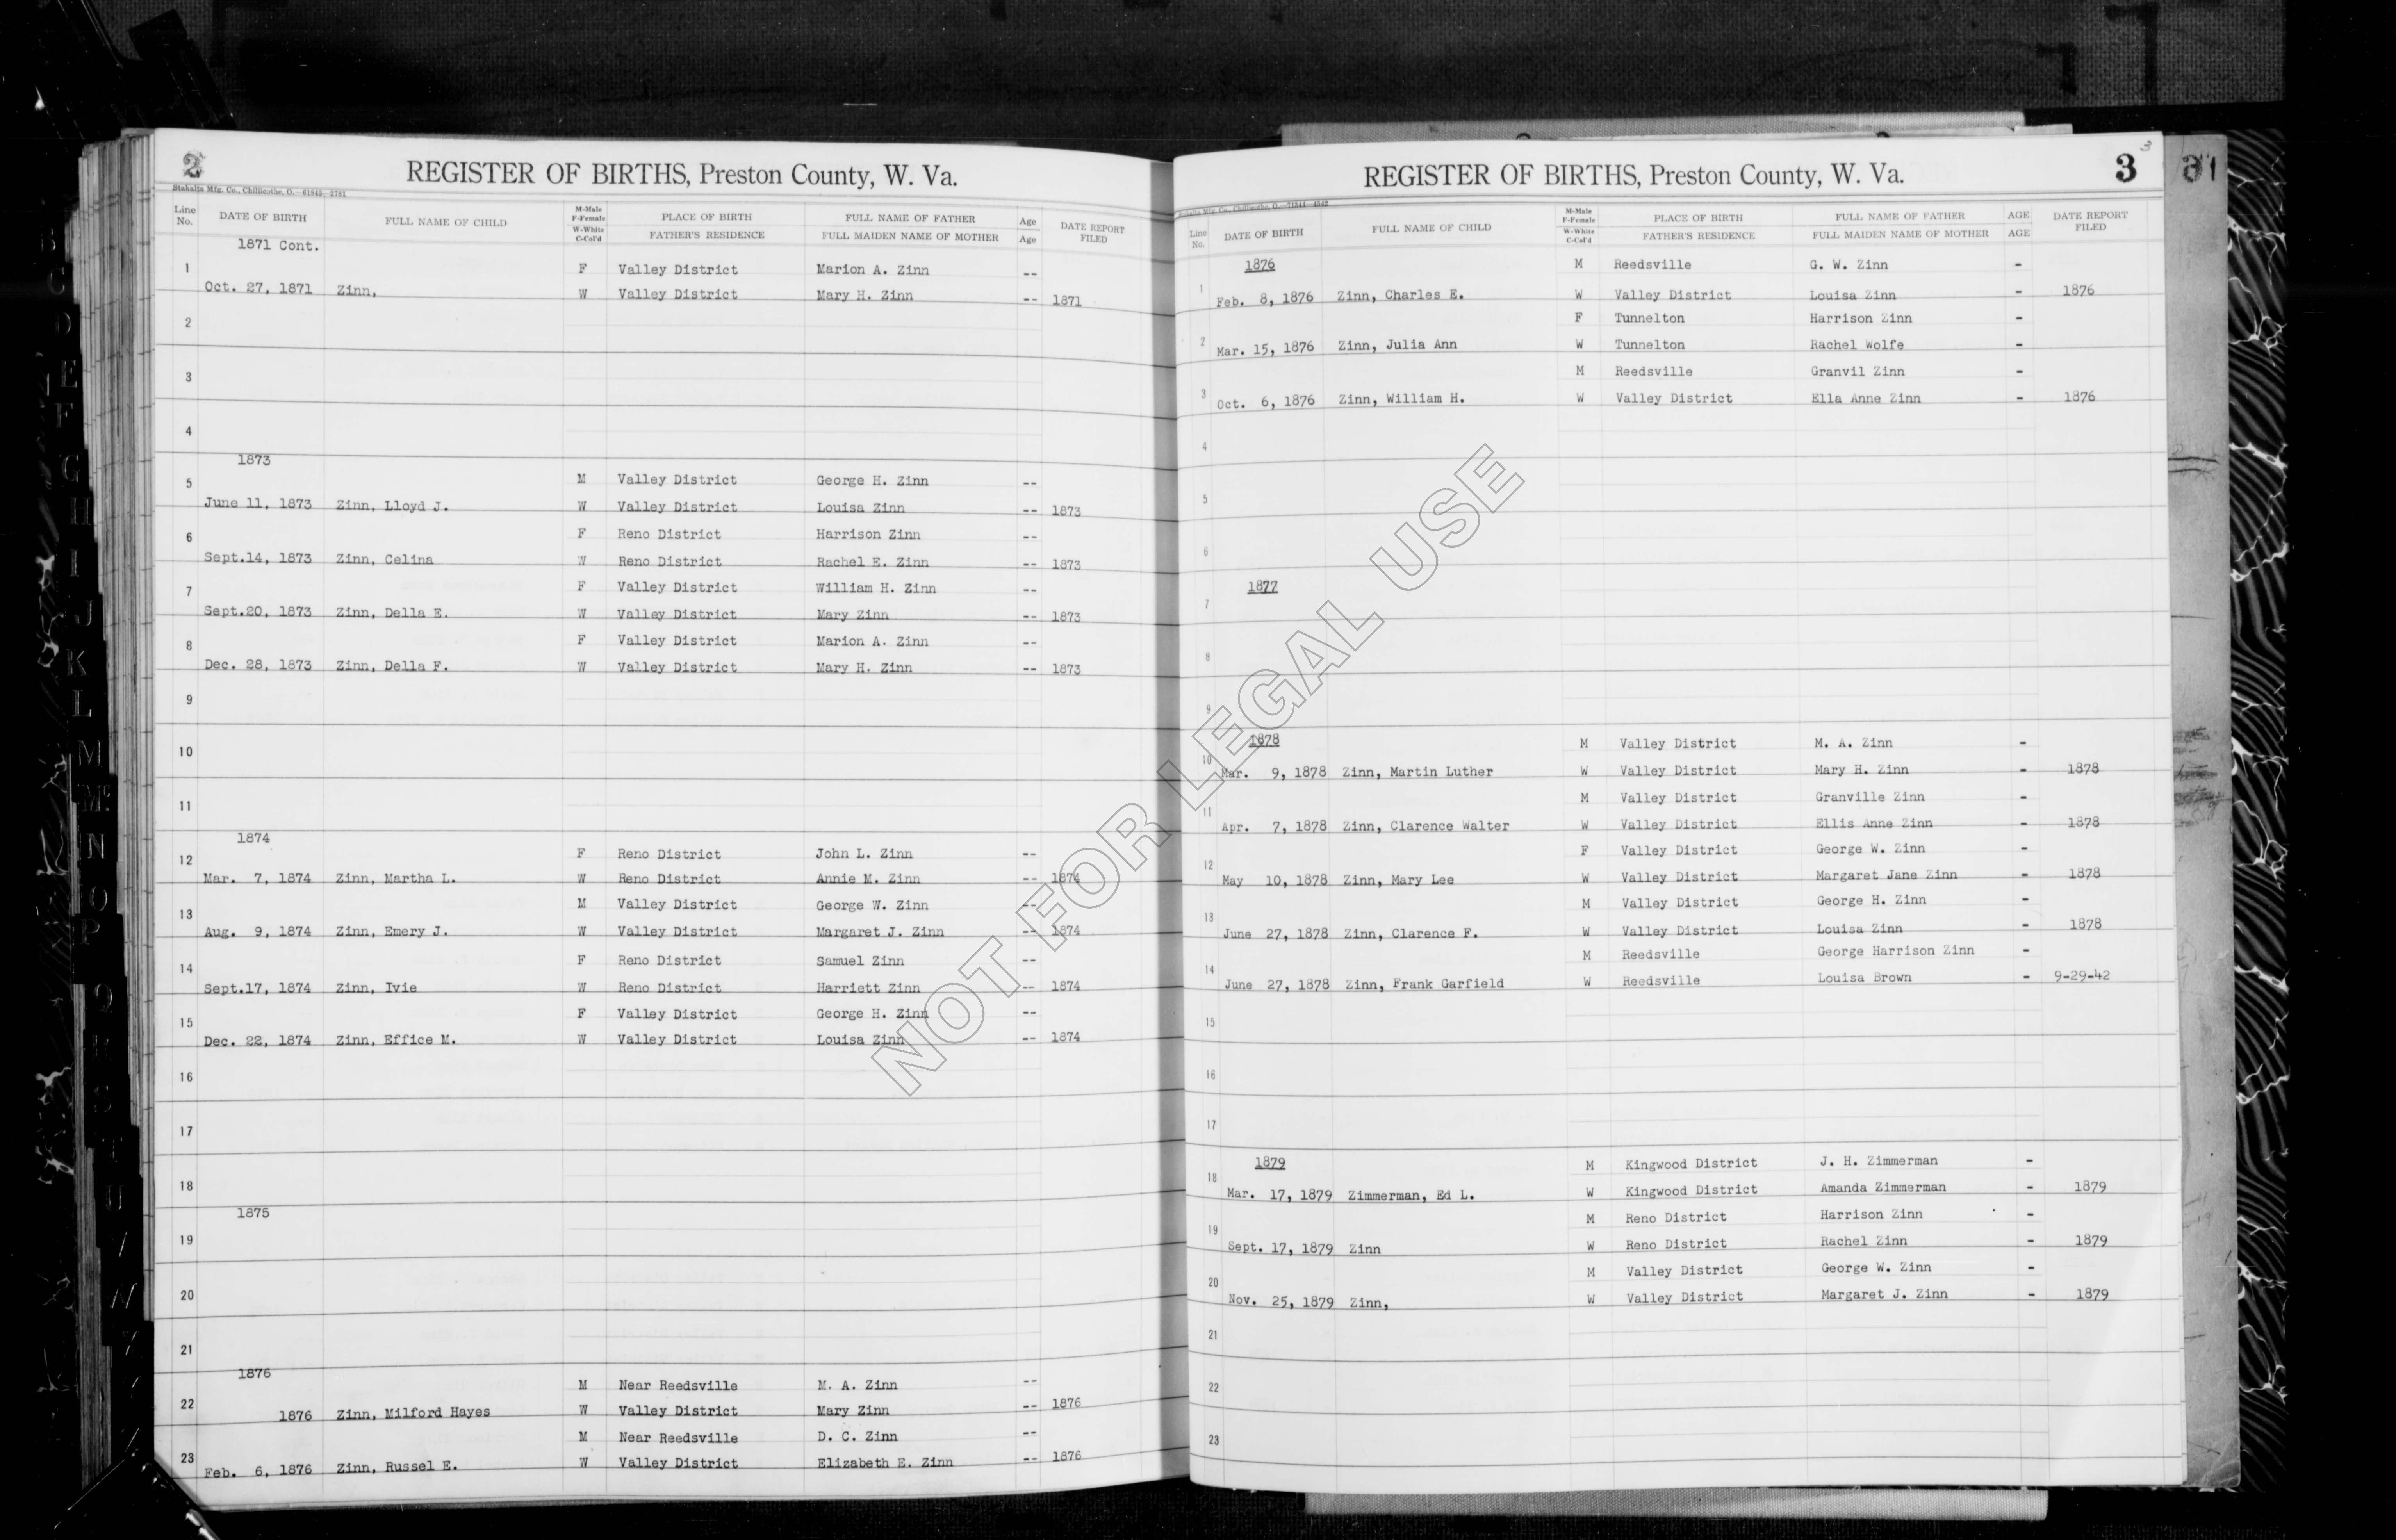 2
REGISTER OF BIRTHS, Preston County, W. Va.
Line No. DATE OF BIRTH FULL NAME OF CHILD M-Male F-Female W-White C-Col'd PLACE OF BIRTH FATHER'S RESIDENCE FULL NAME OF FATHER FULL MAIDEN NAME OF MOTHER Age Age DATE REPORT FILED
1871 Cont.
1 F Valley District Marion A. Zinn --
Oct. 27, 1871 Zinn, W Valley District Mary H. Zinn -- 1871
2
3
4
1873
5 M Valley District George H. Zinn --
June 11, 1873 Zinn, Lloyd J. W Valley District Louisa Zinn -- 1873
6 F Reno District Harrison Zinn --
Sept.14, 1873 Zinn, Celina W Reno District Rachel E. Zinn -- 1873
7 F Valley District William H. Zinn --
Sept.20, 1873 Zinn, Della E. W Valley District Mary Zinn -- 1873
8 F Valley District Marion A. Zinn --
Dec. 28, 1873 Zinn, Della F. W Valley District Mary H. Zinn -- 1873
9
10
11
1874
12 F Reno District John L. Zinn --
Mar. 7, 1874 Zinn, Martha L. W Reno District Annie M. Zinn -- 1874
13 M Valley District George W. Zinn --
Aug. 9, 1874 Zinn, Emery J. W Valley District Margaret J. Zinn -- 1874
14 F Reno District Samuel Zinn --
Sept.17, 1874 Zinn, Ivie W Reno District Harriett Zinn -- 1874
15 F Valley District George H. Zinn --
Dec. 22, 1874 Zinn, Effice M. W Valley District Louisa Zinn -- 1874
16
17
18
1875
19
20
21
1876
22 M Near Reedsville M. A. Zinn --
1876 Zinn, Milford Hayes W Valley District Mary Zinn -- 1876
23 M Near Reedsville D. C. Zinn --
Feb. 6, 1876 Zinn, Russel E. W Valley District Elizabeth E. Zinn -- 1876
3
REGISTER OF BIRTHS, Preston County, W. Va.
3
Line No. DATE OF BIRTH FULL NAME OF CHILD M-Male F-Female W-White C-Col'd PLACE OF BIRTH FATHER'S RESIDENCE FULL NAME OF FATHER FULL MAIDEN NAME OF MOTHER AGE AGE DATE REPORT FILED
1876 M Reedsville G. W. Zinn -
1 Feb. 8, 1876 Zinn, Charles E. W Valley District Louisa Zinn - 1876
F Tunnelton Harrison Zinn -
2 Mar. 15, 1876 Zinn, Julia Ann W Tunnelton Rachel Wolfe -
M Reedsville Granvil Zinn -
3 Oct. 6, 1876 Zinn, William H. W Valley District Ella Anne Zinn - 1876
4
5
6
1877
7
8
9
1878 M Valley District M. A. Zinn -
10 Mar. 9, 1878 Zinn, Martin Luther W Valley District Mary H. Zinn - 1878
M Valley District Granville Zinn -
11 Apr. 7, 1878 Zinn, Clarence Walter W Valley District Ellis Anne Zinn - 1878
F Valley District George W. Zinn -
12 May 10, 1878 Zinn, Mary Lee W Valley District Margaret Jane Zinn - 1878
M Valley District George H. Zinn -
13 June 27, 1878 Zinn, Clarence F. W Valley District Louisa Zinn - 1878
M Reedsville George Harrison Zinn -
14 June 27, 1878 Zinn, Frank Garfield W Reedsville Louisa Brown - 9-29-42
15
16
17
1879 M Kingwood District J. H. Zimmerman -
18 Mar. 17, 1879 Zimmerman, Ed L. W Kingwood District Amanda Zimmerman - 1879
M Reno District Harrison Zinn -
19 Sept. 17, 1879 Zinn W Reno District Rachel Zinn - 1879
M Valley District George W. Zinn -
20 Nov. 25, 1879 Zinn, W Valley District Margaret J. Zinn - 1879
21
22
23
NOT FOR LEGAL USE